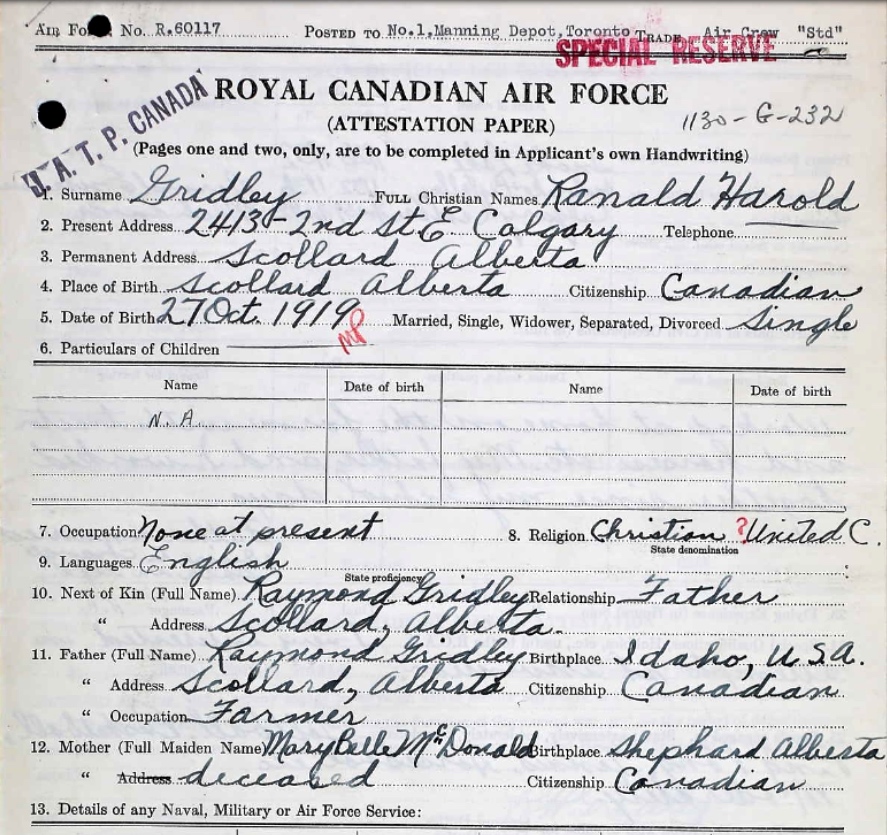 Air Force No. R.60117 Posted to No.1,Manning Depot,Toronto Trade Air Crew "Std"
SPECIAL RESERVE
ROYAL CANADIAN AIR FORCE
(ATTESTATION PAPER)
1130-G-232
(Pages one and two, only, are to be completed in Applicant's own Handwriting)
A. T. P. CANADA
1. Surname Gridley Full Christian Names Ranald Harold
2. Present Address 2413-2nd St E Calgary Telephone
3. Permanent Address Scollard Alberta
4. Place of Birth Scollard Alberta Citizenship Canadian
5. Date of Birth 27 Oct. 1919 Married, Single, Widower, Separated, Divorced Single
6. Particulars of Children
Name Date of birth Name Date of birth
N.A.
7. Occupation None at present 8. Religion Christian ? United C.
State denomination
9. Languages English
State proficiency
10. Next of Kin (Full Name) Raymond Gridley Relationship Father
" Address Scollard, Alberta.
11. Father (Full Name) Raymond Gridley Birthplace Idaho, U.S.A.
" Address Scollard, Alberta Citizenship Canadian
" Occupation Farmer
12. Mother (Full Maiden Name) Mary Belle McDonald Birthplace Shephard Alberta
" Address deceased Citizenship Canadian
13. Details of any Naval, Military or Air Force Service: